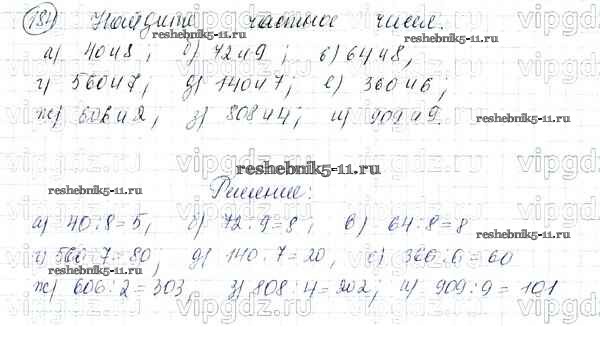 184 Найдите частное чисел.
reshebnik5-11.ru reshebnik5-11.ru
а) 40 и 8; б) 72 и 9; в) 64 и 8;
г) 560 и 7; д) 140 и 7; е) 360 и 6;
ж) 606 и 2; з) 808 и 4; и) 909 и 9.
reshebnik5-11.ru
reshebnik5-11.ru
reshebnik5-11.ru
Решение:
а) 40:8=5, б) 72:9=8; в) 64:8=8
reshebnik5-11.ru
г) 560:7=80, д) 140:7=20, е) 360:6=60
reshebnik5-11.ru
ж) 606:2=303, з) 808:4=202; и) 909:9=101
vipgdz.ru